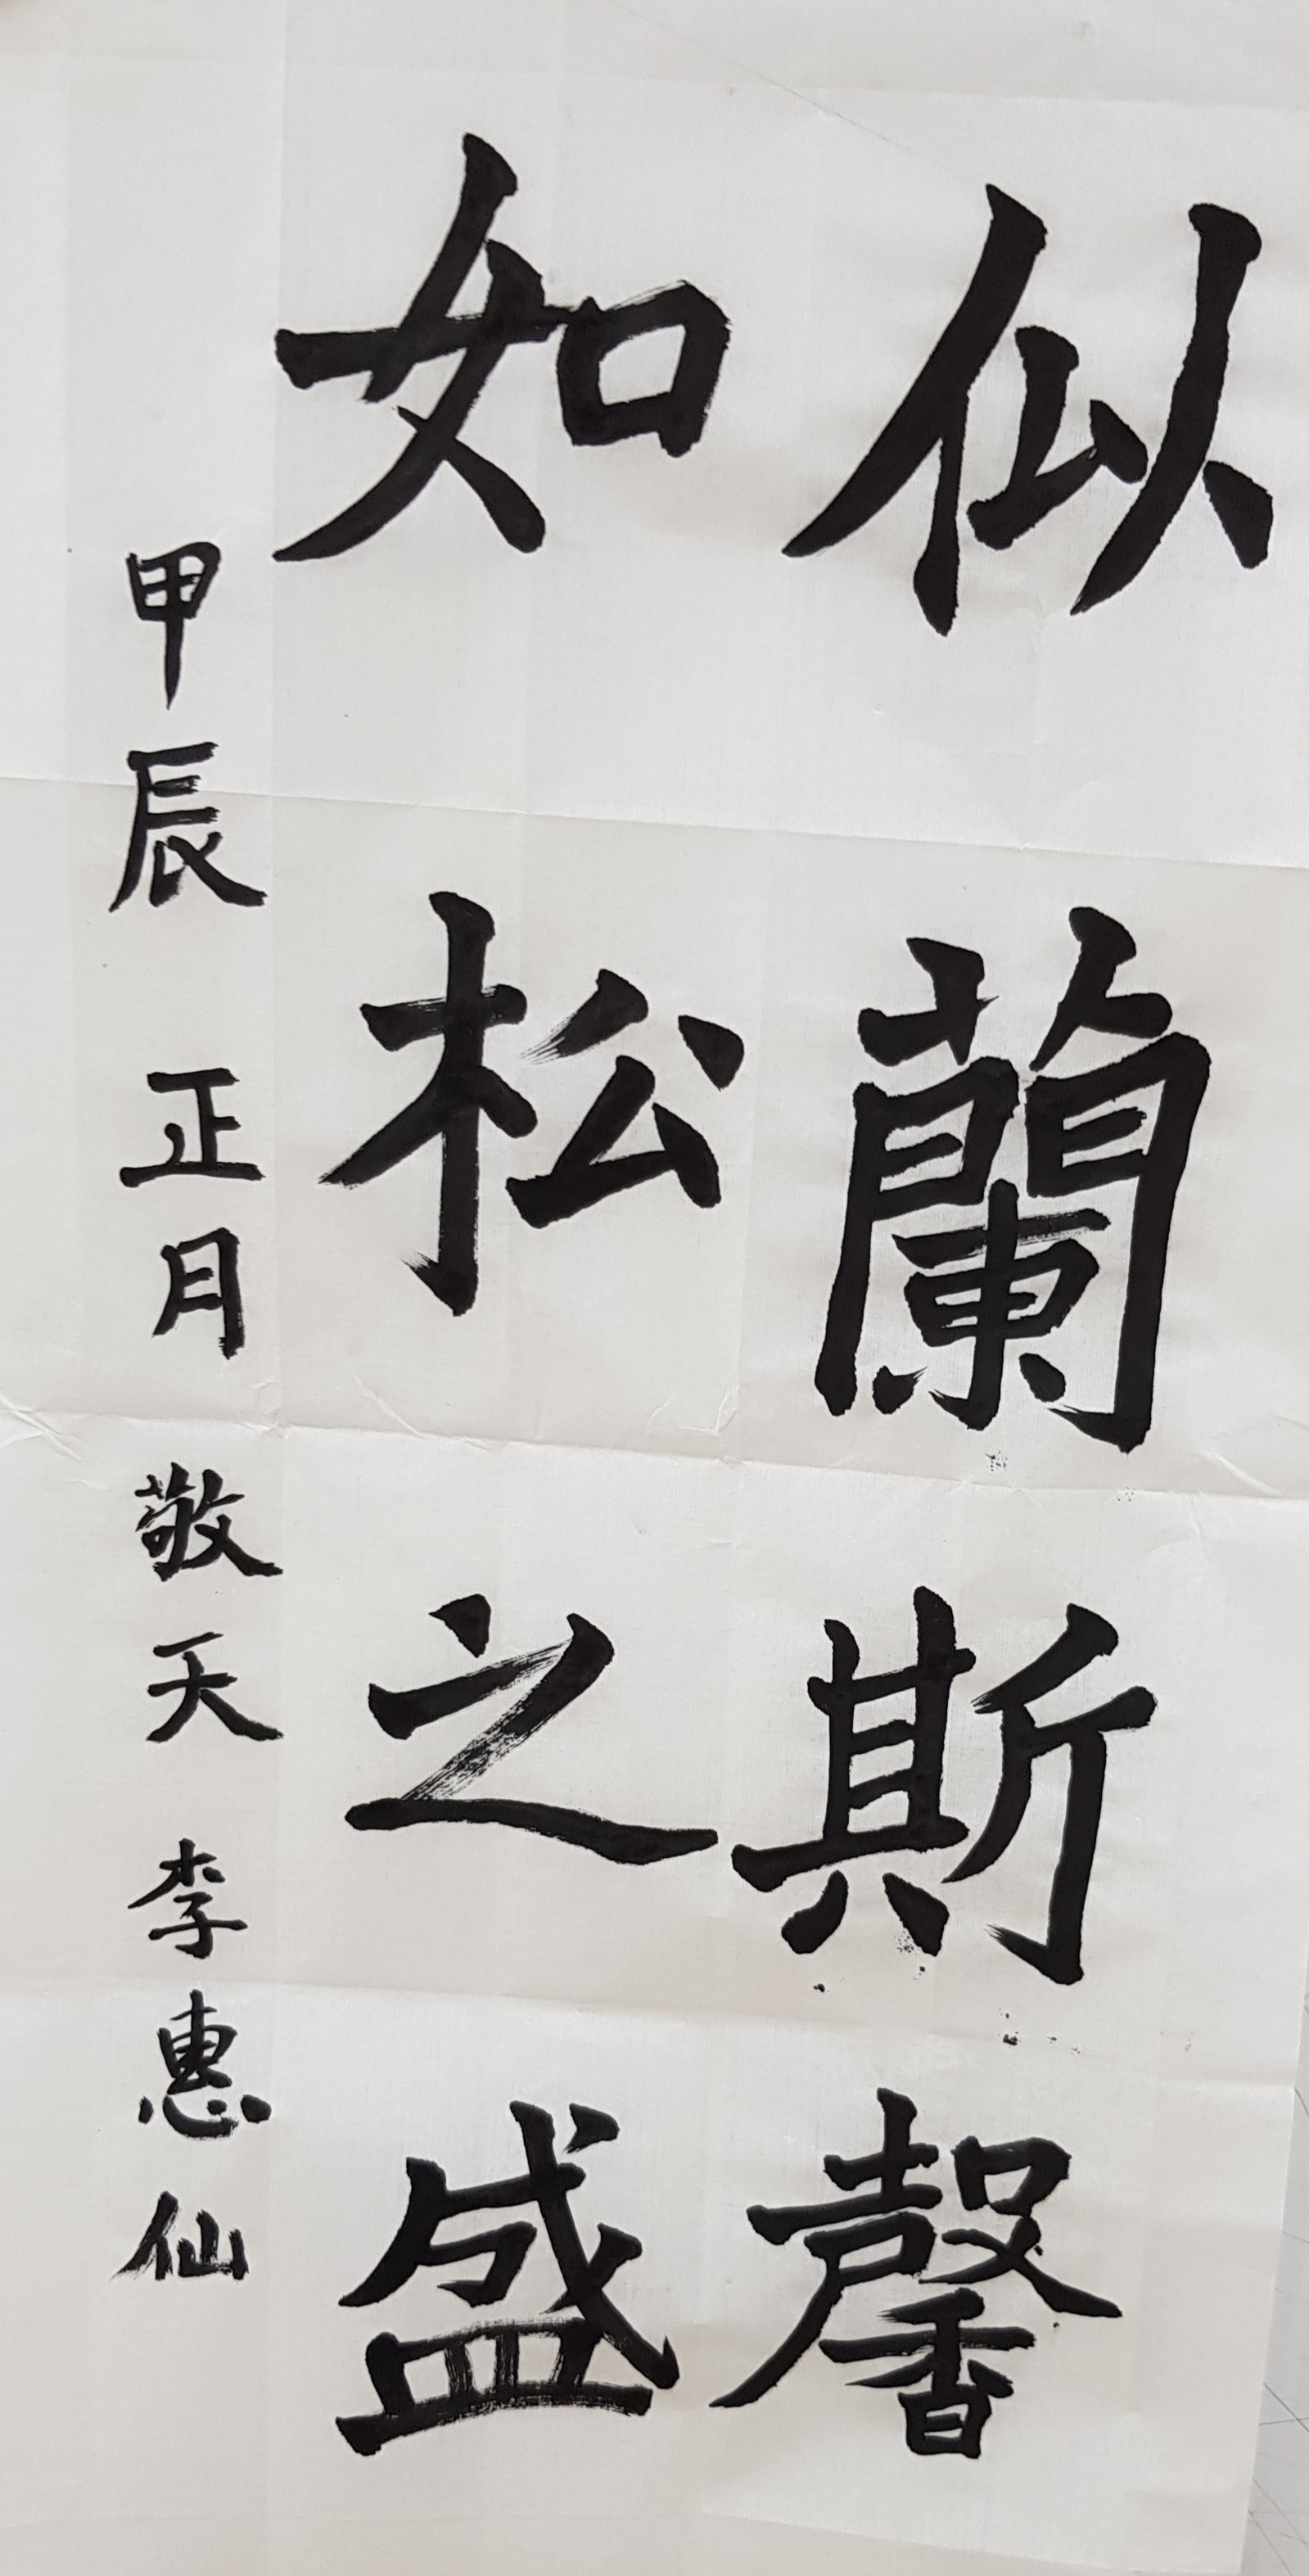 似蘭斯馨
如松之盛
甲辰 正月 敬天 李惠仙